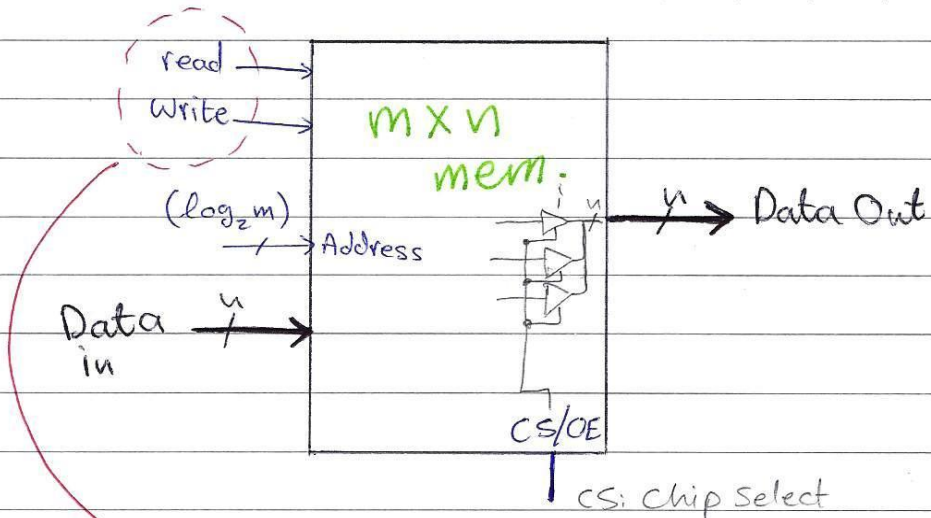 read
Write
m x n
mem.
(log₂m)
Address
n
n
Data Out
n
Data
in
CS/OE
CS: Chip Select